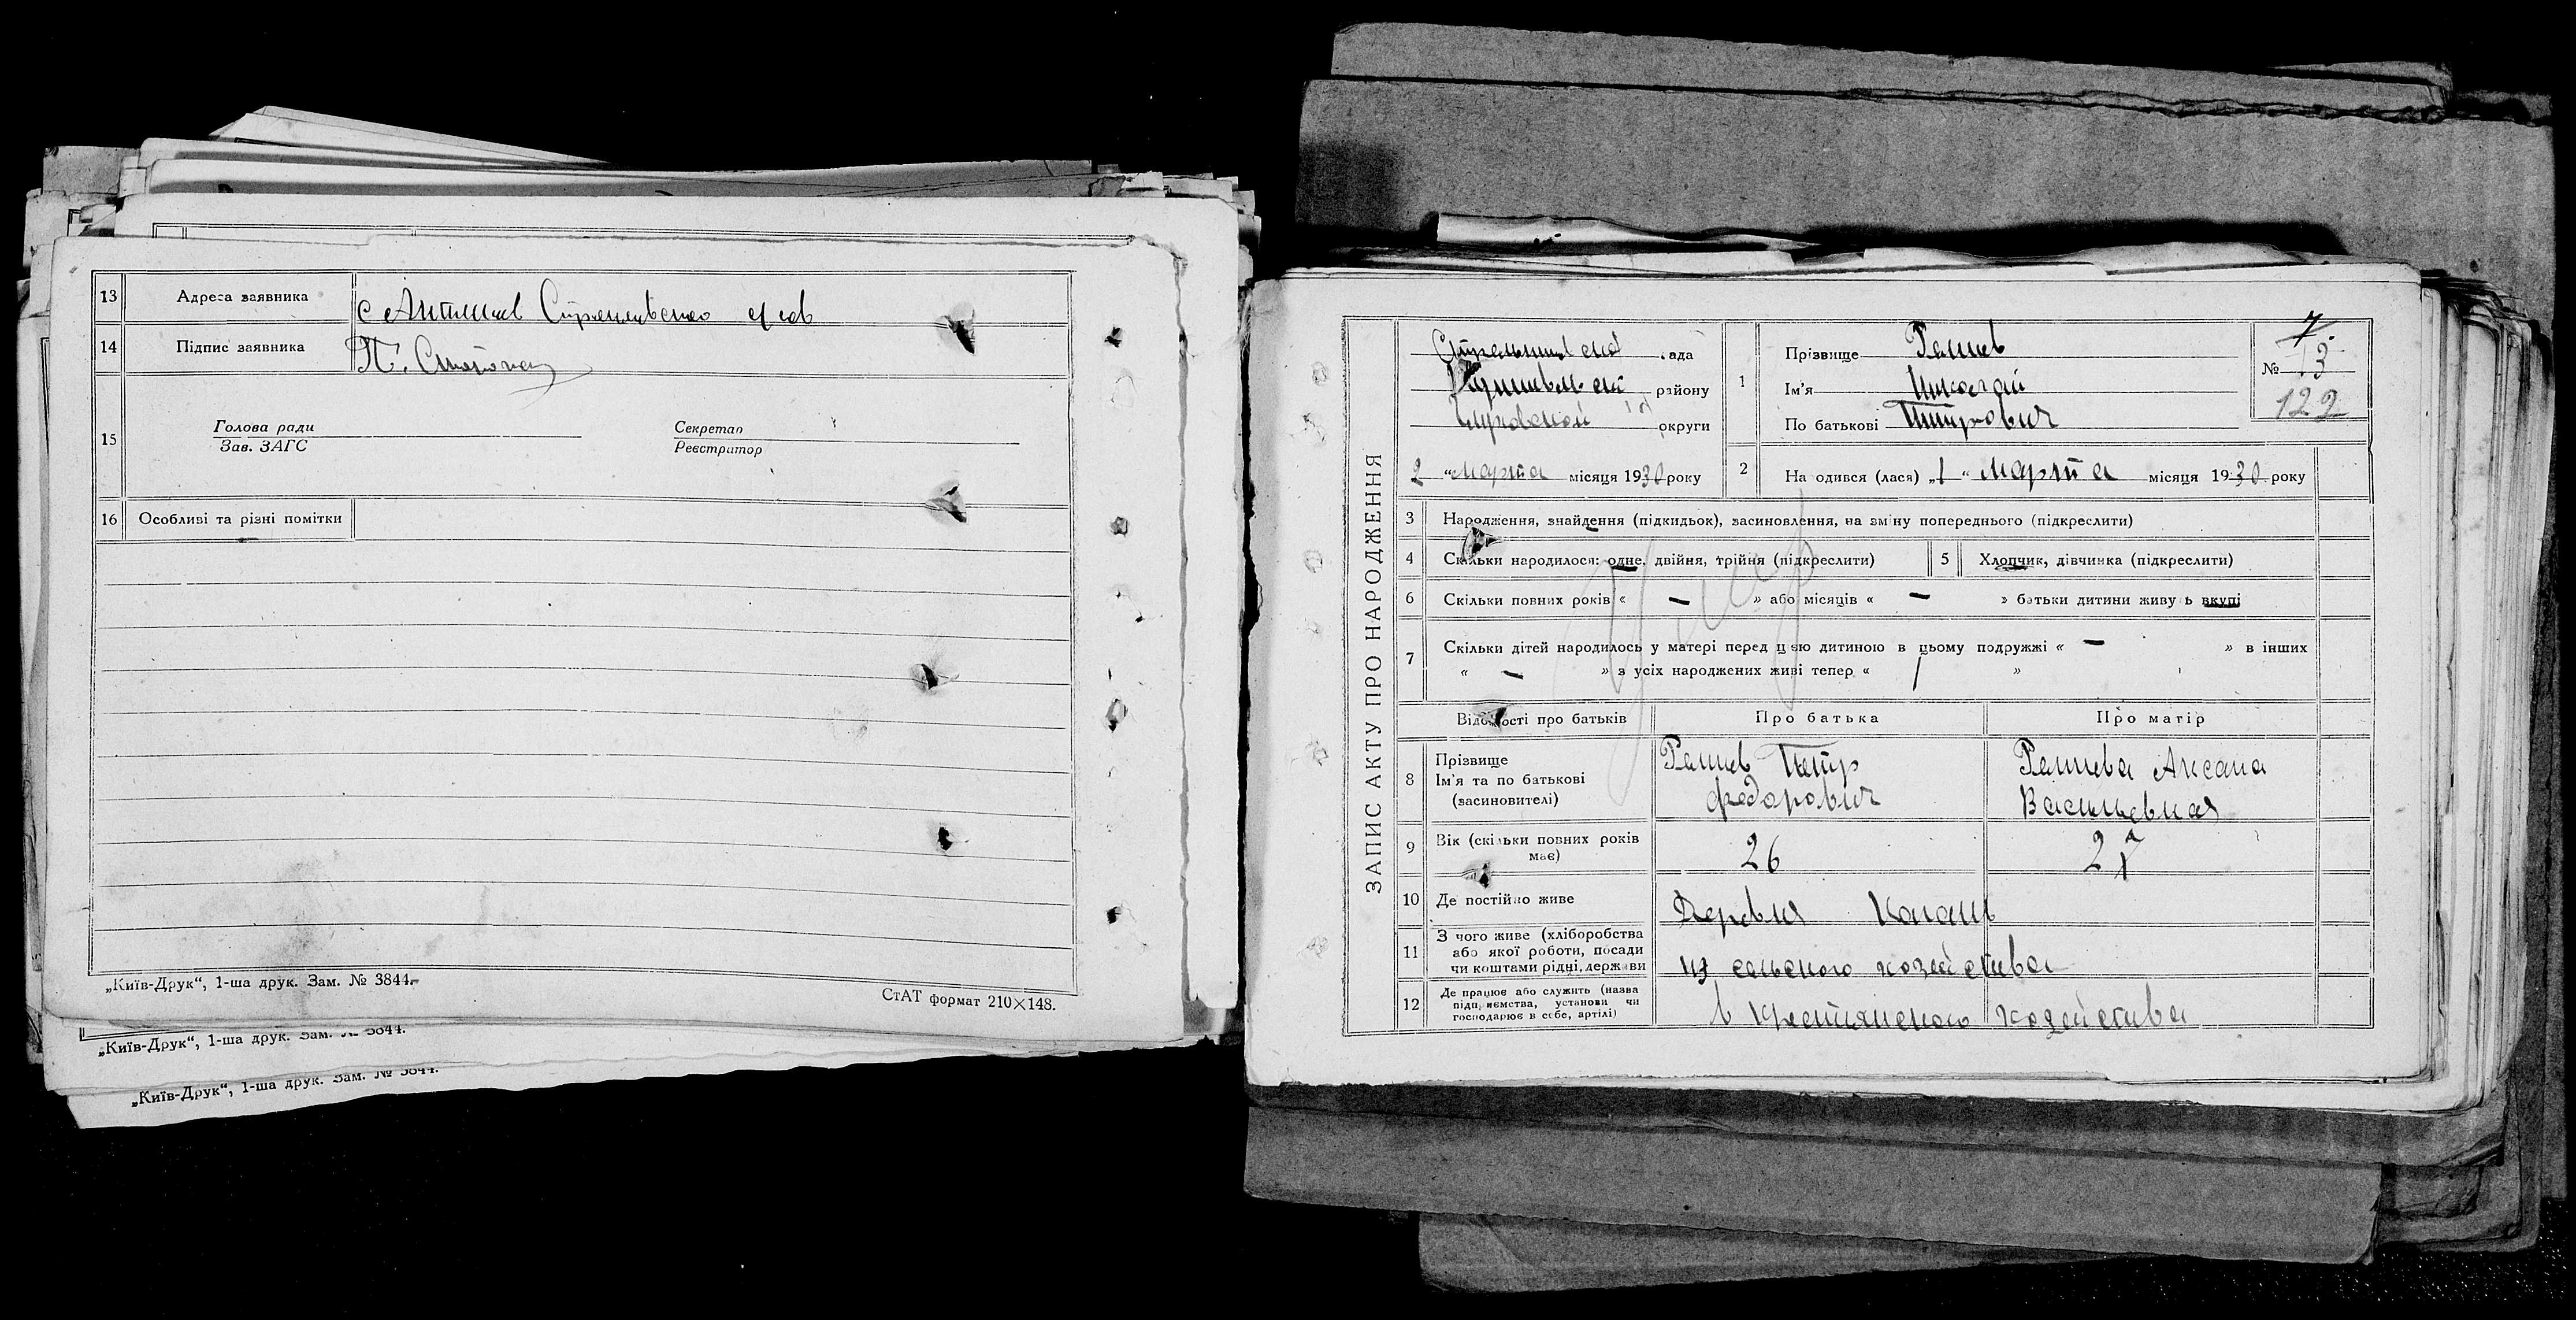 13 Адреса заявника
14 Підпис заявника
15 Голова ради Секретар
Зав. ЗАГС Реєстратор
16 Особливі та різні помітки
„Київ-Друк“, 1-ша друк. Зам. № 3844.
СтАТ формат 210×148.
„Київ-Друк“, 1-ша друк. Зам. № 3844.
„Київ-Друк“, 1-ша друк. Зам. № 3844.
ЗАПИС АКТУ ПРО НАРОДЖЕННЯ
рада
району
округи
2 “ Марта місяця 1930 року
1 Прізвище
Ім'я Николай
По батькові Петрович
№ 13
122
2 На одився (лася) „1“ Марта місяця 1930 року
3 Народження, знайдення (підкидьок), засиновлення, на зміну попереднього (підкреслити)
4 Скільки народилося: одне, двійня, трійня (підкреслити) 5 Хлопчик, дівчинка (підкреслити)
6 Скільки повних років « — » або місяців « — » батьки дитини живуть вкупі
7 Скільки дітей народилось у матері перед цією дитиною в цьому подружжі « — » в інших
« — » з усіх народжених живі тепер « »
Відомості про батьків Про батька Про матір
8 Прізвище
Ім'я та по батькові
(засиновителі)
Петр
Федорович
Аксана
Васильевная
9 Вік (скільки повних років має) 26 27
10 Де постійно живе Деревня
11 З чого живе (хліборобства
або якої роботи, посади
чи коштами рідні, держави
из сельского хозейства
12 Де працює або служить (назва
підприємства, установи чи
господарює в себе, артілі)
в Крестянского хозейства